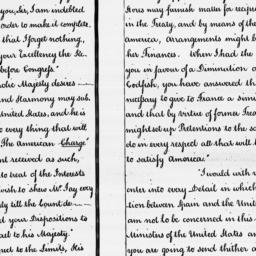 you, Sir, I am indebted
order to make it complete,
that I forget nothing,
your Excellency the Re-
before Congress."
holic Majesty desires
and Harmony may sub-
United States, and he is
to every thing that will
The American Charge
not received as such,
to treat of the Interests
wish to shew Mr Jay every
till the Count de
your Dispositions to
ait to his Majesty."
pect to the Limits, His
tions may furnish matter for recipro
in the Treaty, and by means of the
america, arrangements might b
her Finances. When I had the
you in favour of a Diminution
Codfish, you have answered th
necessary to give to France a simi
and that by virtue of former Trea
might set up Pretentions to the sa
do in every respect all that will
to satisfy America."
"I would with
enter into every Detail in which
tion between Spain and the Unit
am not to be concerned in this
Ministers of the United States an
you are going to send thither a